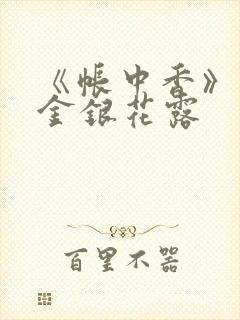 《帐中香》
金银花露
百里不器